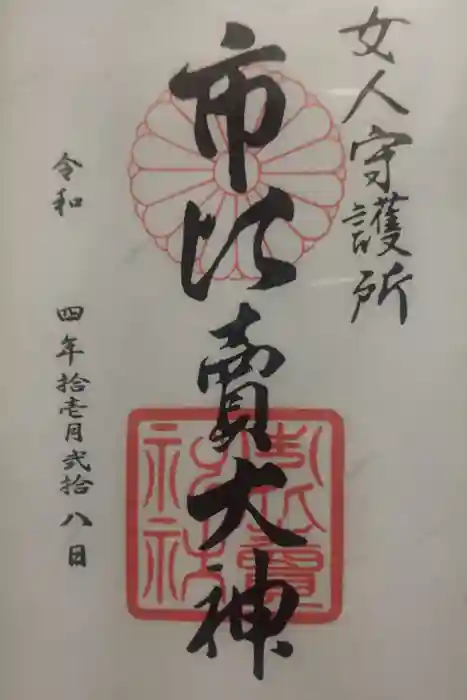 女人守護所
市比賣大神
市比賣神社
令和 四年拾壱月弐拾八日